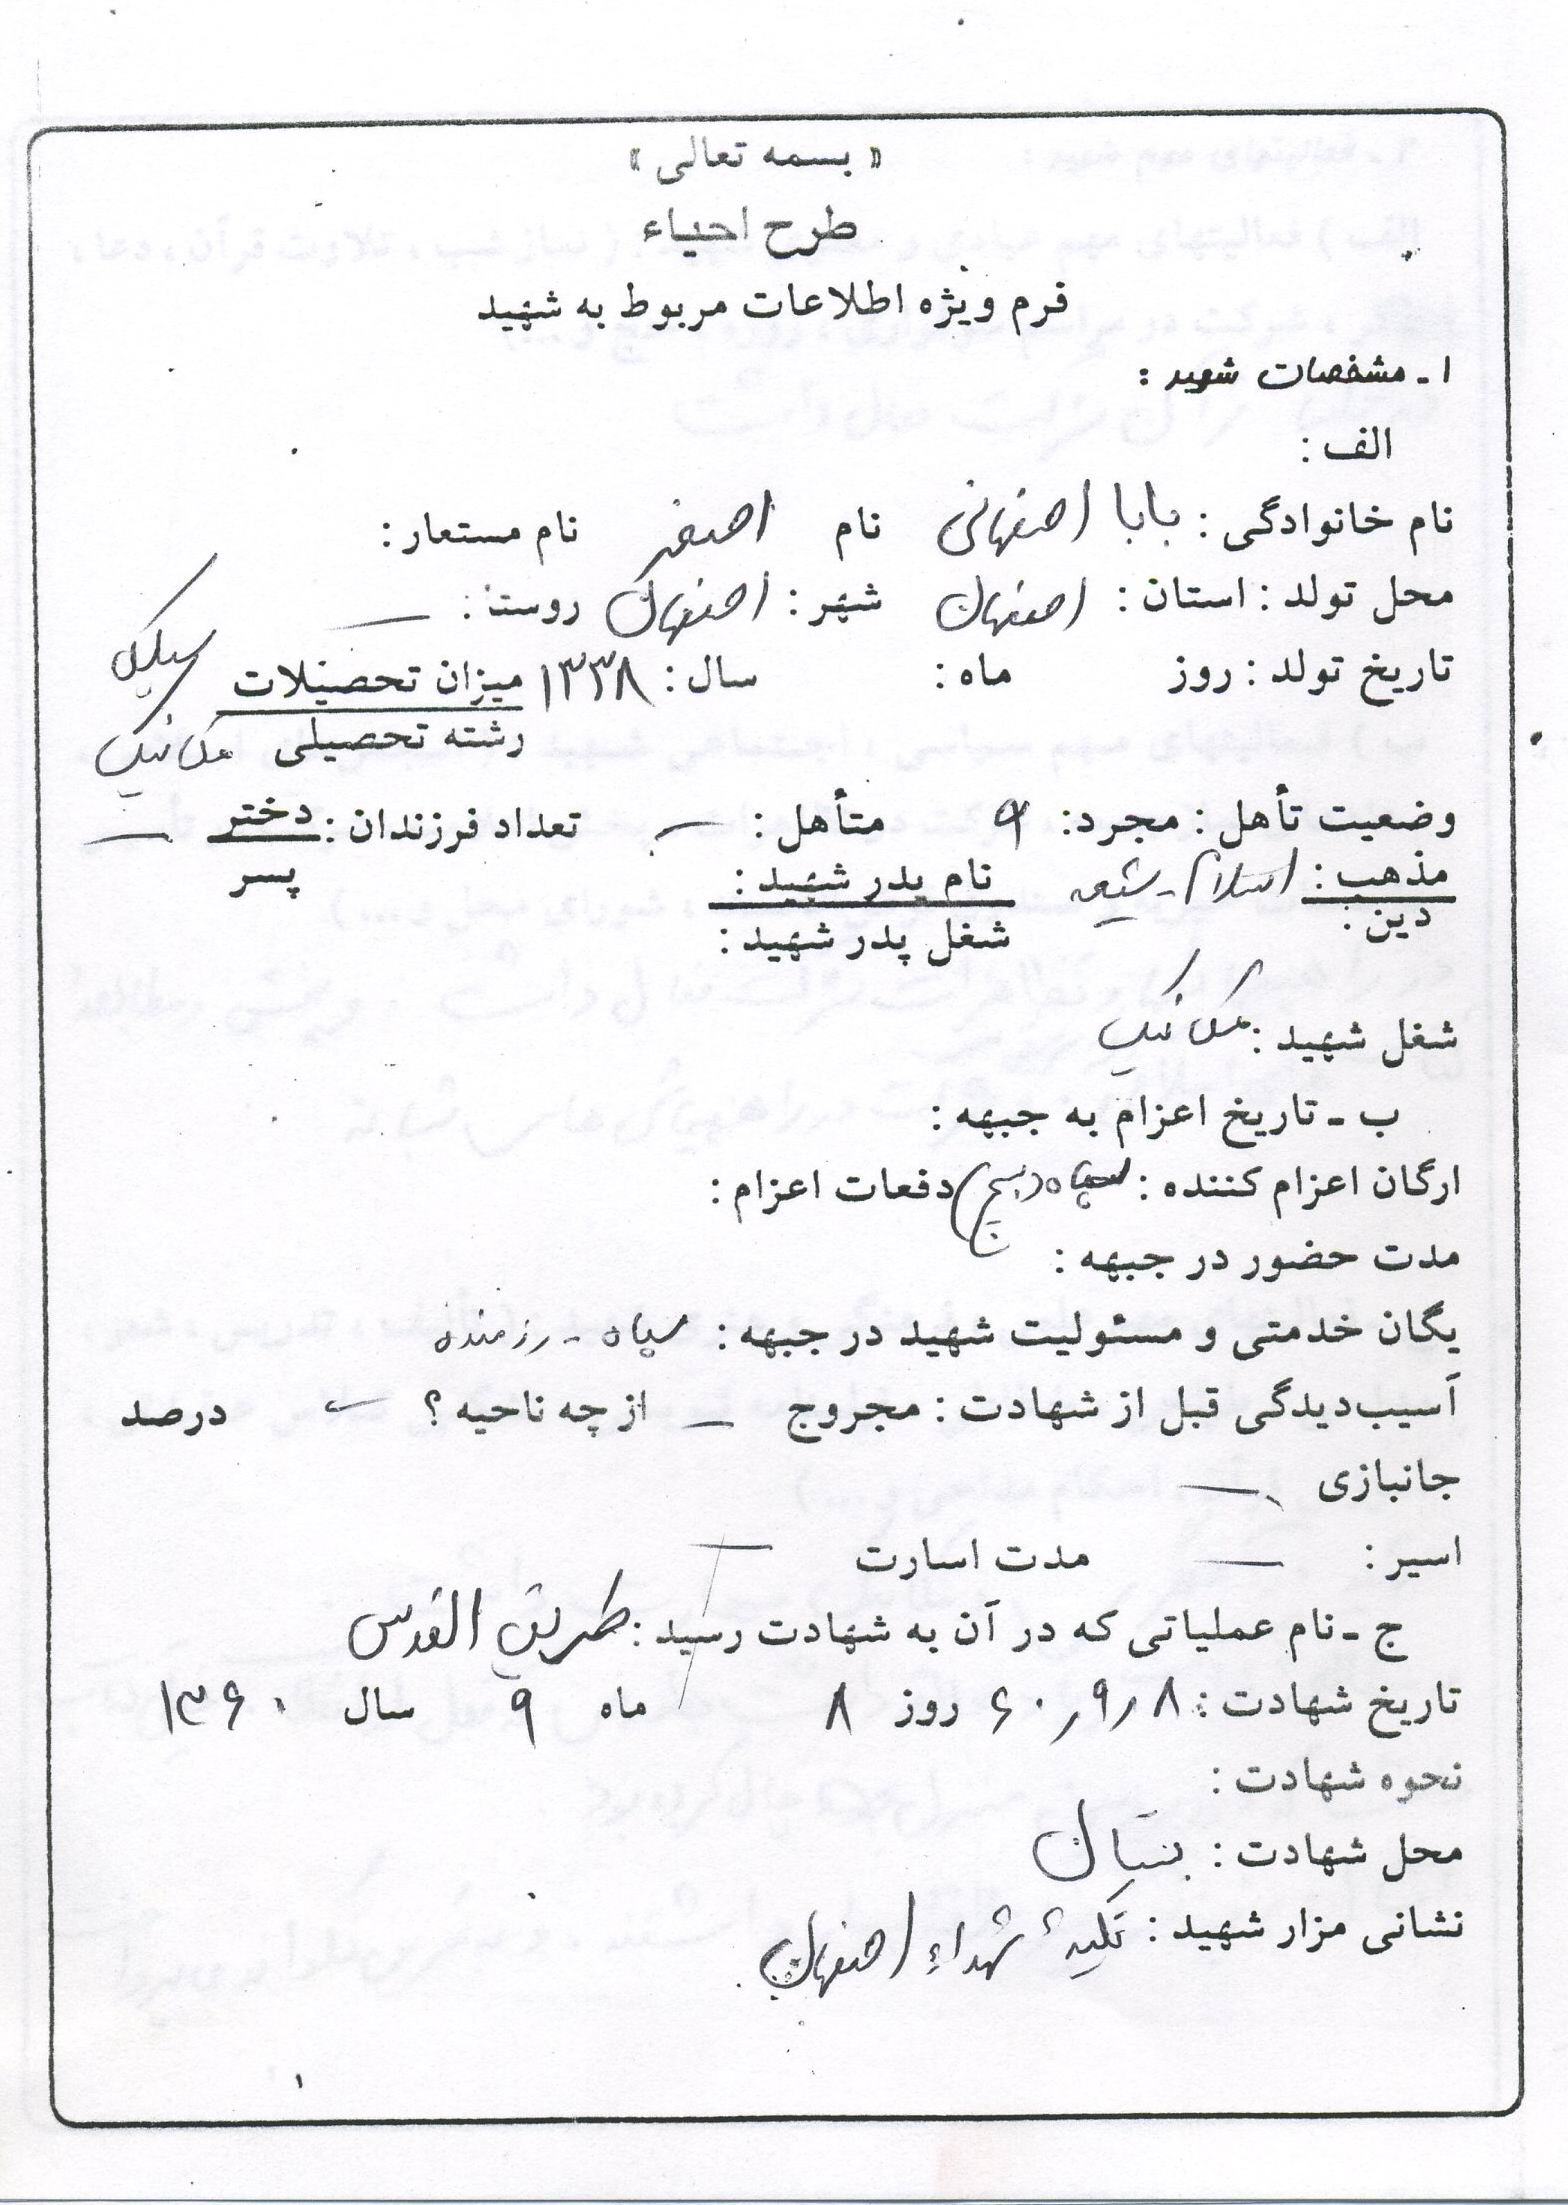 « بسمه تعالی »
طرح احیاء
فرم ویژه اطلاعات مربوط به شهید
۱ ـ مشخصات شهید :
الف :
نام خانوادگی : بابا اصفهانی نام اصغر نام مستعار :
محل تولد : استان : اصفهان شهر : اصفهان روستا : —
تاریخ تولد : روز ماه : سال : ۱۳۳۸ میزان تحصیلات سیکل
رشته تحصیلی مکانیک
وضعیت تأهل : مجرد : متأهل : — تعداد فرزندان : دختر —
پسر
مذهب : اسلام ـ شیعه نام پدر شهید :
دین : شغل پدر شهید :
شغل شهید : مکانیک
ب ـ تاریخ اعزام به جبهه :
ارگان اعزام کننده : سپاه (بسیج) دفعات اعزام :
مدت حضور در جبهه :
یگان خدمتی و مسئولیت شهید در جبهه : سپاه ـ رزمنده
آسیب‌دیدگی قبل از شهادت : مجروح — از چه ناحیه ؟ — درصد
جانبازی —
اسیر : — مدت اسارت —
ج ـ نام عملیاتی که در آن به شهادت رسید : طریق القدس
تاریخ شهادت : ۶۰٫۹٫۸ روز ۸ ماه ۹ سال ۱۳۶۰
نحوه شهادت :
محل شهادت :
نشانی مزار شهید : تکیه شهداء اصفهان
۱